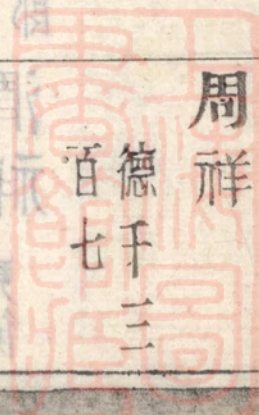 周祥
德千三
百七